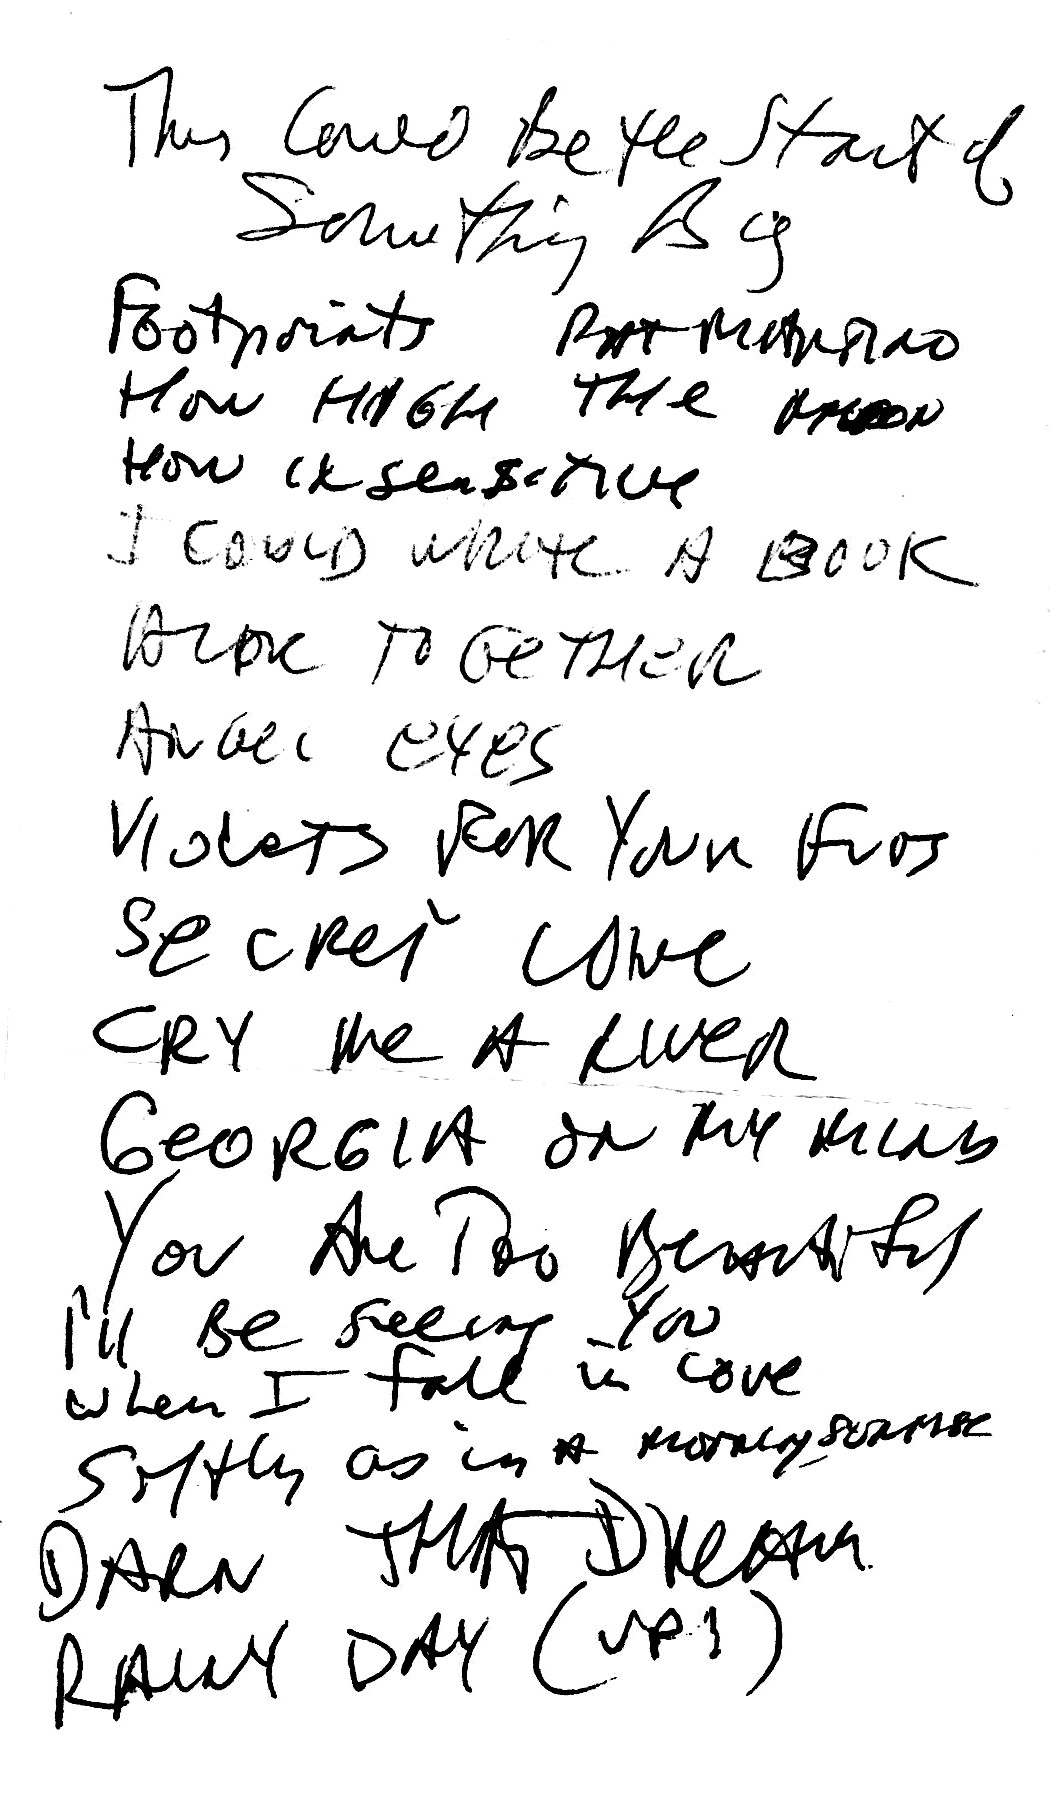 This Could Be the Start of
Something Big
Footprints Pat Martino
How HIGH THE MOON
How insensitive
I COULD WRITE A BOOK
ALONE TOGETHER
ANGEL EYES
VIOLETS FOR YOUR FURS
SECRET LOVE
CRY Me A RIVER
GEORGIA ON MY MIND
You Are Too Beautiful
I'll Be Seeing You
when I fall in love
Softly as in A MORNING SUNRISE
DARN THAT DREAM
RAINY DAY